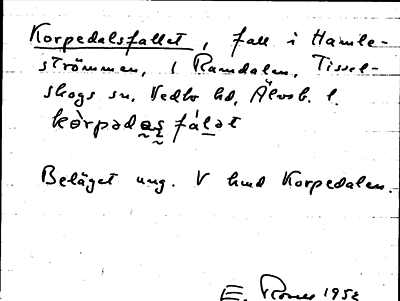 Korpedalsfallet, fall i Hamle-
strömmen, i Ramdalen, Tissel-
skogs sn, Vedbo hd, Älvsb. l.
kòrpədaʂ fálət
Beläget ung. V hmd Korpedalen.
E. 1952